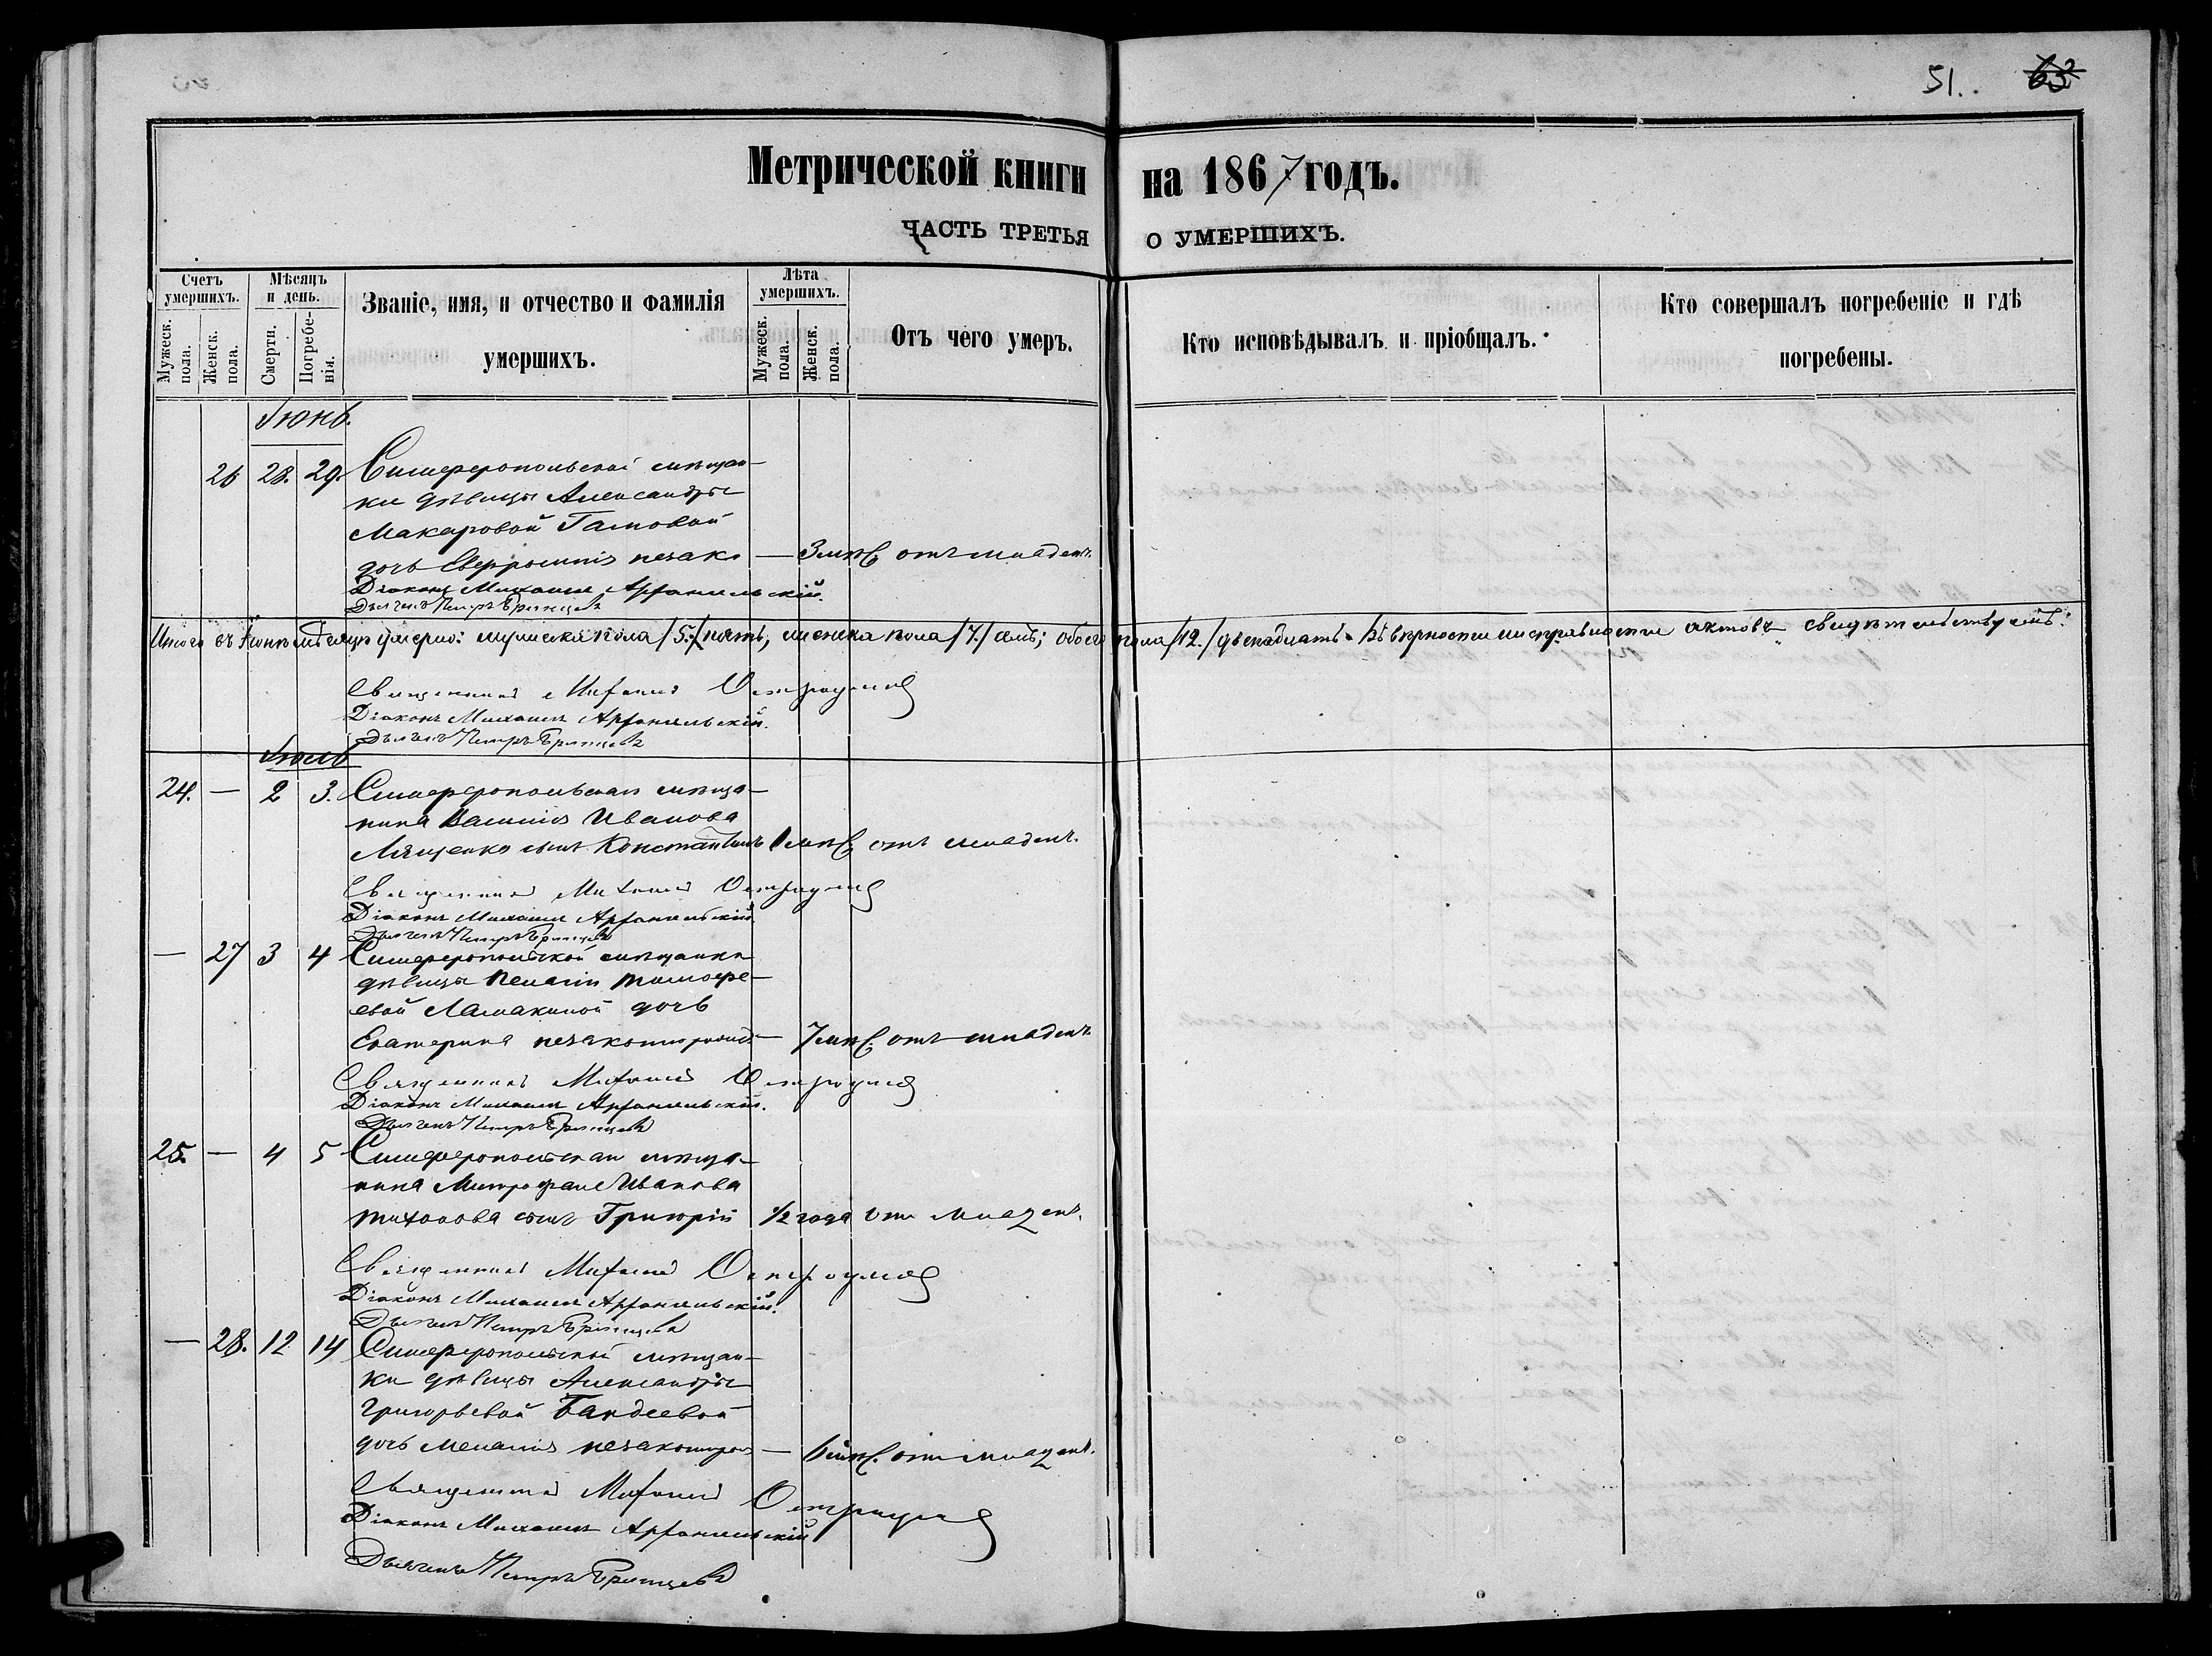 51. 63
Метрической книги на 1867 годъ.
ЧАСТЬ ТРЕТЬЯ О УМЕРШИХЪ.
Счетъ умершихъ.
Мужеск. пола.
Женск. пола.
Мѣсяцъ и день.
Смерти.
Погребенія.
Званіе, имя, и отчество и фамилія умершихъ.
Лѣта умершихъ.
Мужеск. пола.
Женск. пола.
Отъ чего умеръ.
Кто исповѣдывалъ и пріобщалъ.
Кто совершалъ погребеніе и гдѣ погребены.
Іюнь.
26 28. 29. Симферопольской мѣщан-
ки дѣвицы Александры
Макаровой Гамовой
дочь Евфросинія незак. — 3 мѣс. отъ младенч.
Діаконъ Михаилъ Архангельскій.
Дьячекъ Петръ
Итого въ Іюнѣ мѣсяцѣ умерло: мужеска пола /5./ пять, женска пола /7./ семь; обоего пола /12./ двенадцать. Въ вѣрности и исправности актовъ свидѣтельствуемъ:
Священникъ
Діаконъ Михаилъ Архангельскій.
Дьячекъ Петръ
Іюль
24. — 2 3. Симферопольскаго мѣща-
нина Василія Иванова
Лященко сынъ Константинъ 1 мѣс. отъ младенч.
Священникъ
Діаконъ Михаилъ Архангельскій.
Дьячекъ Петръ
— 27 3 4 Симферопольской мѣщанки
дѣвицы Пелагіи Тимофе-
евой Ламакиной дочь
Екатерина незаконнорожд. — 7 мѣс. отъ младенч.
Священникъ
Діаконъ Михаилъ Архангельскій.
Дьячекъ Петръ
25. — 4 5 Симферопольскаго мѣща-
нина Митрофана Иванова
Тихонова сынъ Григорій 1/2 года отъ младенч.
Священникъ
Діаконъ Михаилъ Архангельскій.
Дьячекъ Петръ
— 28. 12 14 Симферопольской мѣщан-
ки дѣвицы Александры
Григорьевой
дочь Меланія незаконнорож. — 6 мѣс. отъ младенч.
Священникъ
Діаконъ Михаилъ Архангельскій
Дьячекъ Петръ